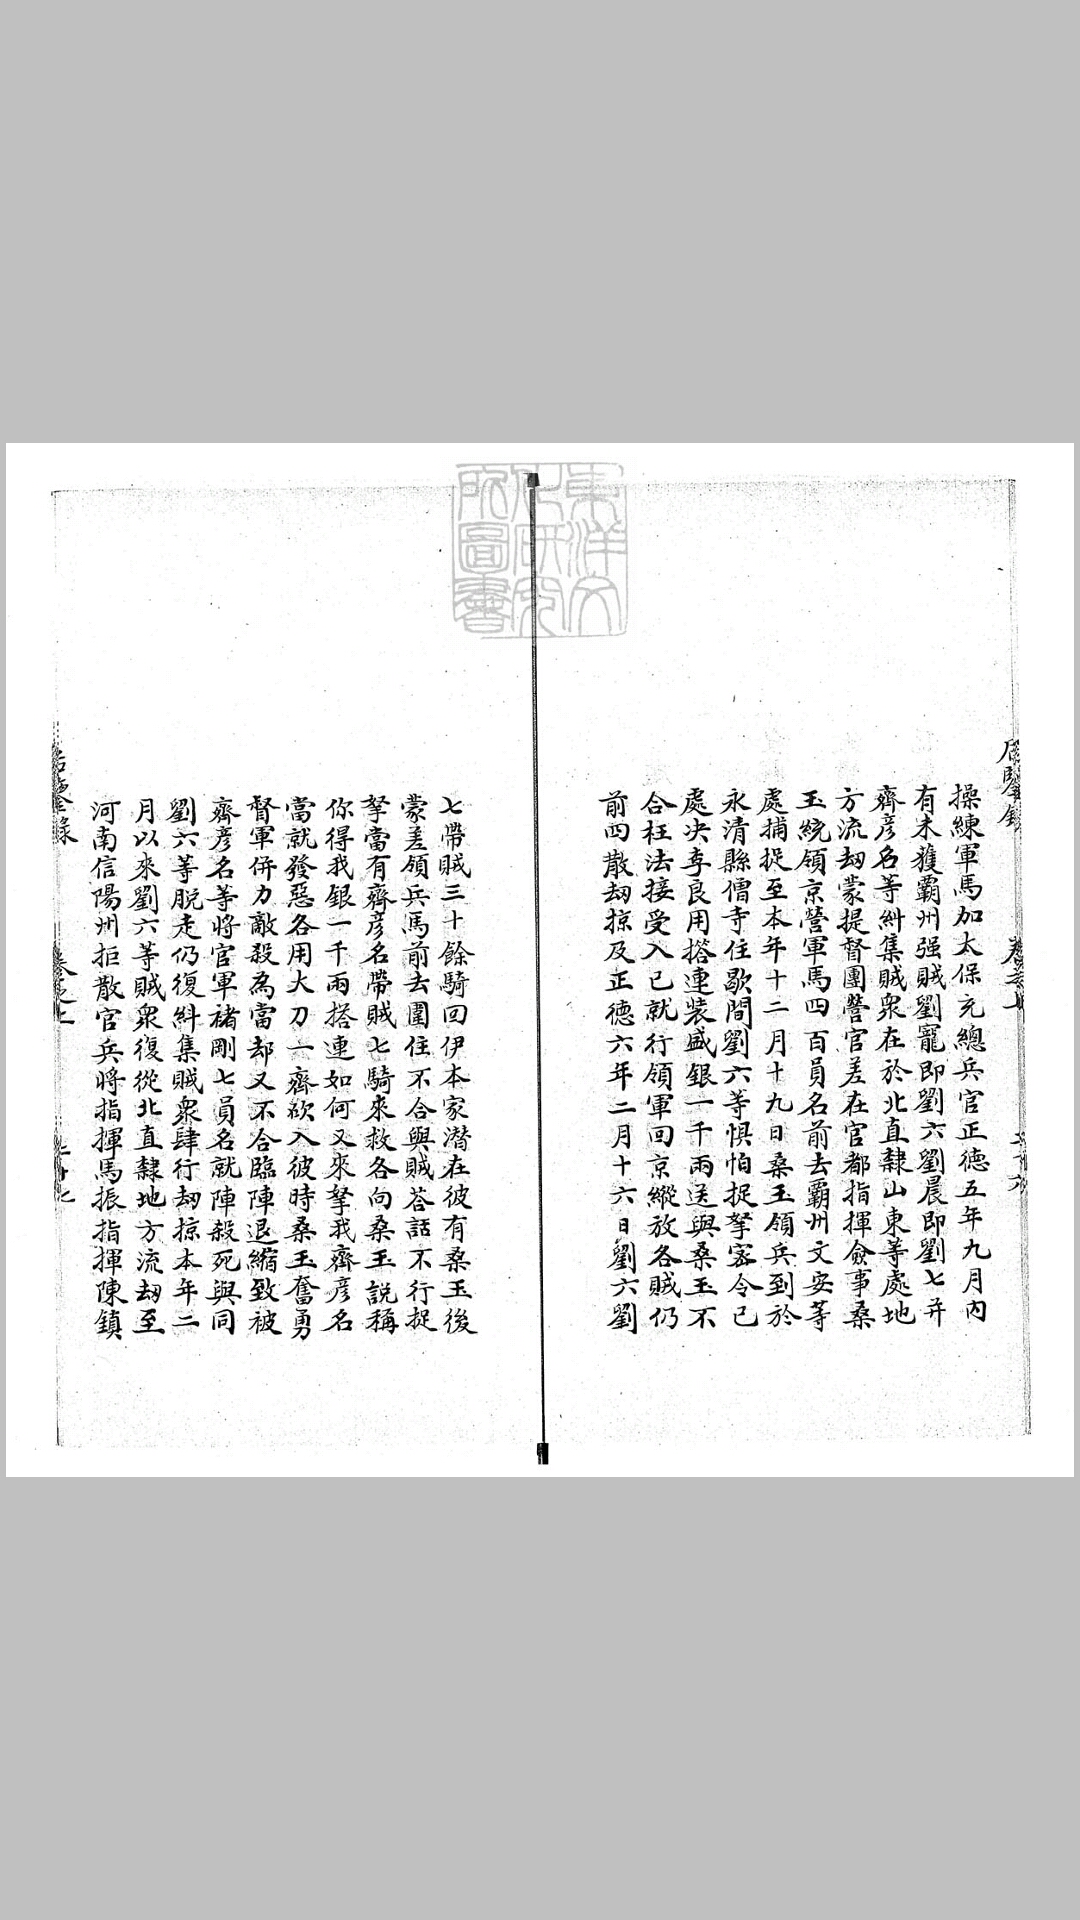 操練軍馬加太保充總兵官正德五年九月內
有未獲霸州强賊劉寵即劉六劉晨即劉七并
齊彦名等糾集賊衆在於北直隸山東等處地
方流刼蒙提督團營官差在官都指揮僉事桑
玉統領京營軍馬四百員名前去霸州文安等
處捕捉至本年十二月十九日桑玉領兵到於
永清縣僧寺住歇間劉六等惧怕捉拏密令已
處决李良用搭連裝盛銀一千兩送與桑玉不
合枉法接受入已就行領軍回京縱放各賊仍
前四散刼掠及正德六年二月十六日劉六劉
七帶賊三十餘騎回伊本家潜在彼有桑玉後
蒙差領兵馬前去圍住不合與賊荅話不行捉
拏當有齊彦名帶賊七騎來救各向桑玉説稱
你得我銀一千兩搭連如何又來拏我齊彦名
當就發惡各用大刀一齊欲入彼時桑玉奮勇
督軍併力敵殺為當却又不合臨陣退縮致被
齊彦名等將官軍禇剛七員名就陣殺死與同
劉六等脱走仍復糾集賊衆肆行刼掠本年二
月以來劉六等賊衆復從北直隸地方流刼至
河南信陽州拒散官兵將指揮馬振指揮陳鎮
東洋文
化研究
所圖書